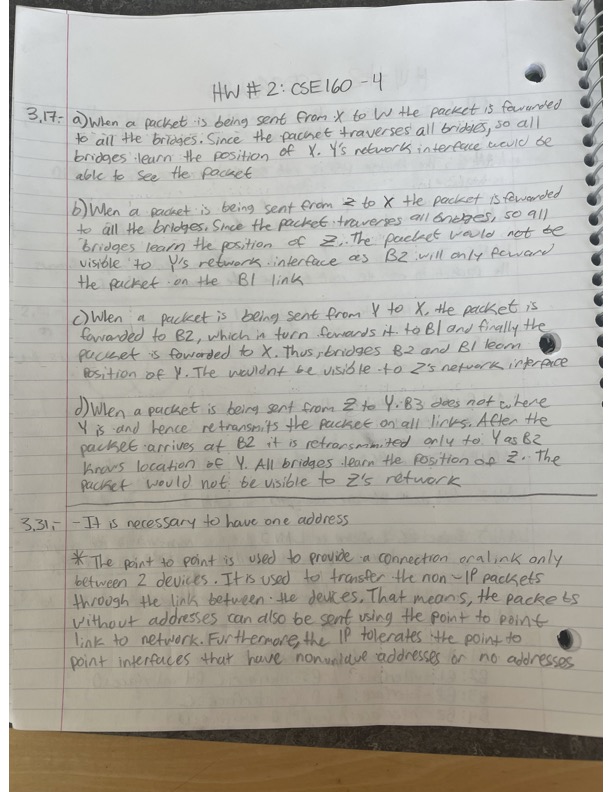 HW # 2: CSE160 - 4
3.17:- a) When a packet is being sent from X to W the packet is fowarded
to all the bridges. Since the packet traverses all bridges, so all
bridges learn the position of X. Y's network interface would be
able to see the packet
b) When a packet is being sent from Z to X the packet is fowarded
to all the bridges. Since the packet traverses all bridges, so all
bridges learn the position of Z. The packet would not be
visible to Y's network interface as B2 will only foward
the packet on the B1 link
c) When a packet is being sent from Y to X, the packet is
fowarded to B2, which in turn fowards it to B1 and finally the
packet is fowarded to X. Thus, bridges B2 and B1 learn
position of Y. The wouldnt be visible to Z's network interface
d) When a packet is being sent from Z to Y. B3 does not where
Y is and hence retransmits the packet on all links. After the
packet arrives at B2 it is retransmmited only to Y as B2
knows location of Y. All bridges learn the position of Z. The
packet would not be visible to Z's network
3.31:- - It is necessary to have one address
* The point to point is used to provide a connection or a link only
between 2 devices. It is used to transfer the non-IP packets
through the link between the devices. That means, the packets
without addresses can also be sent using the point to point
link to network. Furthermore, the IP tolerates the point to
point interfaces that have nonunique addresses or no addresses